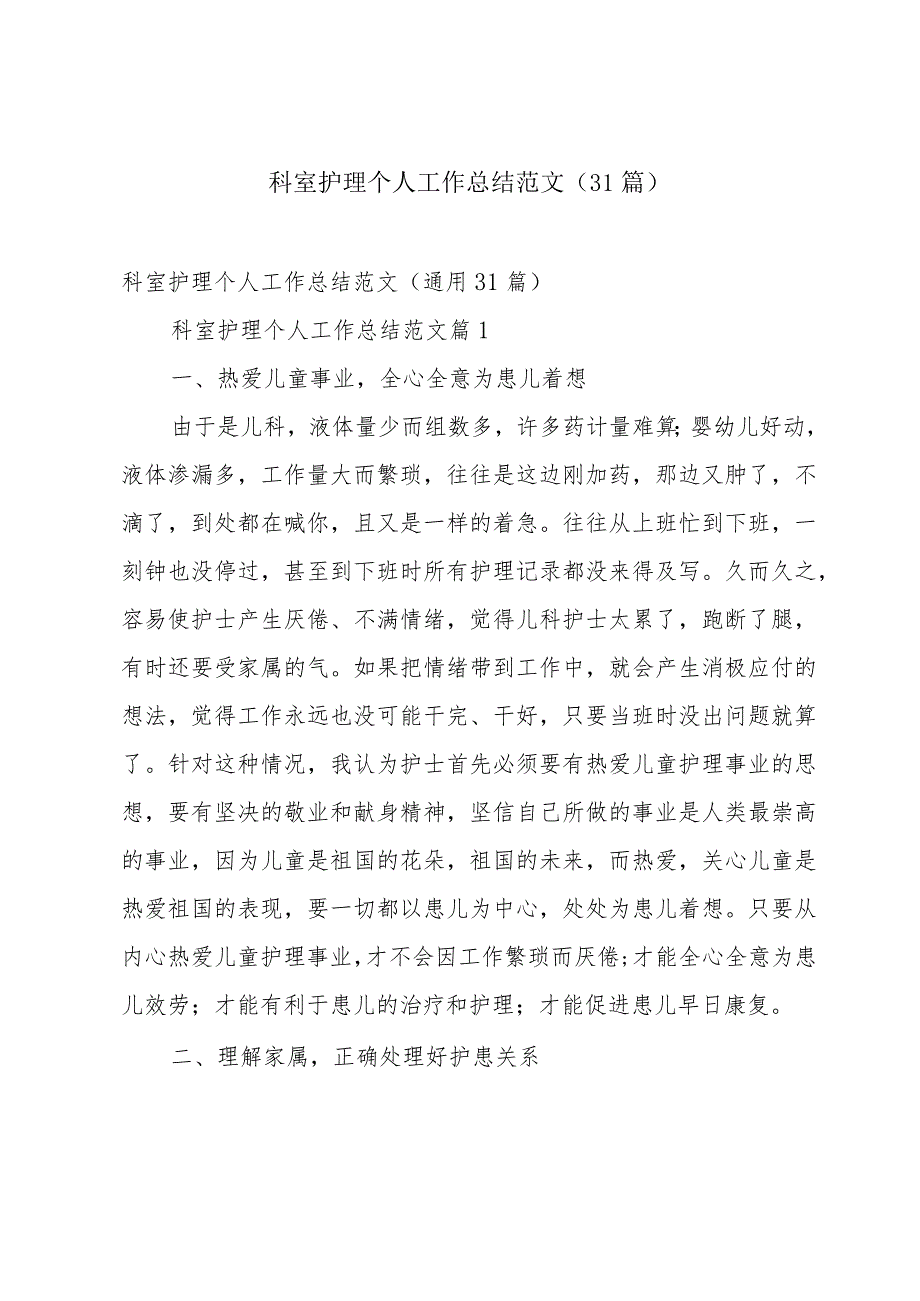 科室护理个人工作总结范文（31篇）
科室护理个人工作总结范文（通用31篇）
科室护理个人工作总结范文篇1
一、热爱儿童事业，全心全意为患儿着想
由于是儿科，液体量少而组数多，许多药计量难算；婴幼儿好动，
液体渗漏多，工作量大而繁琐，往往是这边刚加药，那边又肿了，不
滴了，到处都在喊你，且又是一样的着急。往往从上班忙到下班，一
刻钟也没停过，甚至到下班时所有护理记录都没来得及写。久而久之，
容易使护士产生厌倦、不满情绪，觉得儿科护士太累了，跑断了腿，
有时还要受家属的气。如果把情绪带到工作中，就会产生消极应付的
想法，觉得工作永远也没可能干完、干好，只要当班时没出问题就算
了。针对这种情况，我认为护士首先必须要有热爱儿童护理事业的思
想，要有坚决的敬业和献身精神，坚信自己所做的事业是人类最崇高
的事业，因为儿童是祖国的花朵，祖国的未来，而热爱，关心儿童是
热爱祖国的表现，要一切都以患儿为中心，处处为患儿着想。只要从
内心热爱儿童护理事业，才不会因工作繁琐而厌倦；才能全心全意为患
儿效劳；才能有利于患儿的治疗和护理；才能促进患儿早日康复。
二、理解家属，正确处理好护患关系